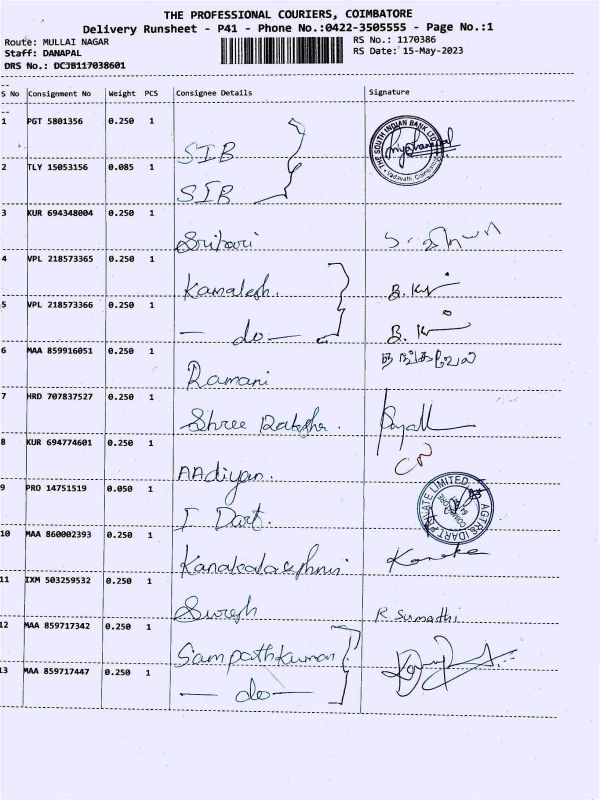 THE PROFESSIONAL COURIERS, COIMBATORE
Delivery Runsheet - P41 - Phone No.:0422-3505555 - Page No.:1
Route: MULLAI NAGAR
RS No.: 1170386
Staff: DANAPAL
RS Date: 15-May-2023
DRS No.: DCJB117038601
S No Consignment No Weight PCS Consignee Details Signature
1 PGT 5801356 0.250 1 SIB
THE SOUTH INDIAN BANK LTD
Vadavalli, Coimbatore
2 TLY 15053156 0.085 1 SIB
3 KUR 694348004 0.250 1 Srihari
4 VPL 218573365 0.250 1 Kamalesh.
5 VPL 218573366 0.250 1 — do —
6 MAA 859916051 0.250 1 Ramani தங்கவேல்
7 HRD 707837527 0.250 1 Shree Raksha.
8 KUR 694774601 0.250 1 AAdiyan.
9 PRO 14751519 0.050 1 I Dart.
10 MAA 860002393 0.250 1
11 IXM 503259532 0.250 1 Suresh R Sumathi
12 MAA 859717342 0.250 1 Sampathkumar
13 MAA 859717447 0.250 1 — do —